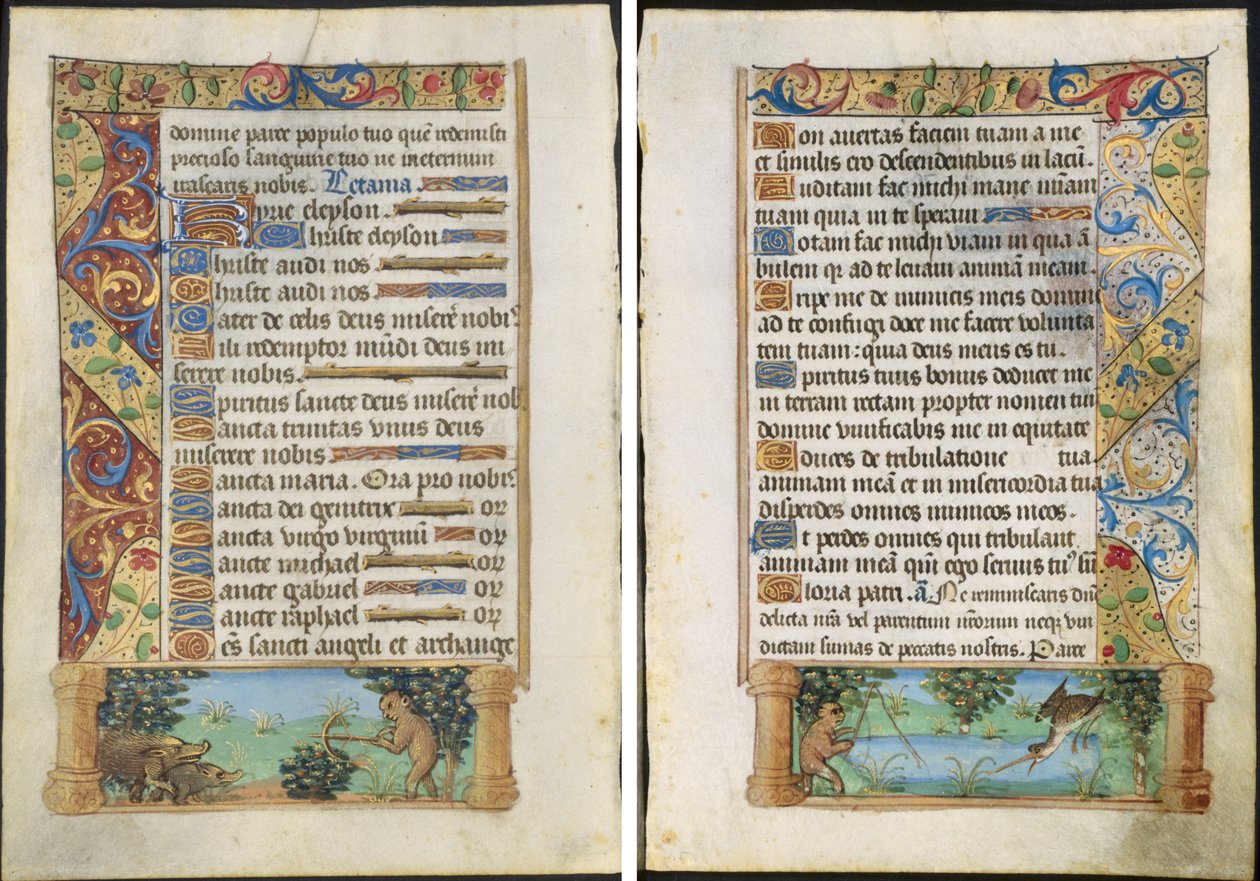 domine parce populo tuo quē redemisti
precioso sanguine tuo ne ineternum
irascaris nobis. Letania.
Kyrie eleyson.
Christe eleyson
Christe audi nos
Christe audi nos
Pater de celis deus miserē nobis
Fili redemptor mūdi deus mi
serere nobis.
Spiritus sancte deus miserē nob
Sancta trinitas vnus deus
miserere nobis
Sancta maria. Ora pro nobis
Sancta dei genitrix or
Sancta virgo virginū or
Sancte michael or
Sancte gabriel or
Sancte raphael or
Oēs sancti angeli et archange
Non auertas faciem tuam a me
et similis ero descendentibus in lacū.
Auditam fac michi mane mīam
tuam quia in te speraui
Notam fac michi viam in qua ā
bulem qz ad te leuaui animā meam.
Eripe me de inimicis meis domine
ad te confugi doce me facere volunta
tem tuam: quia deus meus es tu.
Spiritus tuus bonus deducet me
in terram rectam propter nomen tuū
domine viuificabis me in equitate
Educes de tribulatione tua
animam meā et in misericordia tua
disperdes omnes inimicos meos.
Et perdes omnes qui tribulant
animam meā qm̄ ego seruus tuꝰ sū
Gloria patri. a. Ne reminiscaris dn̄e
delicta nr̄a vel parentum nr̄orum neqz vin
dictam sumas de peccatis nostris. Parce